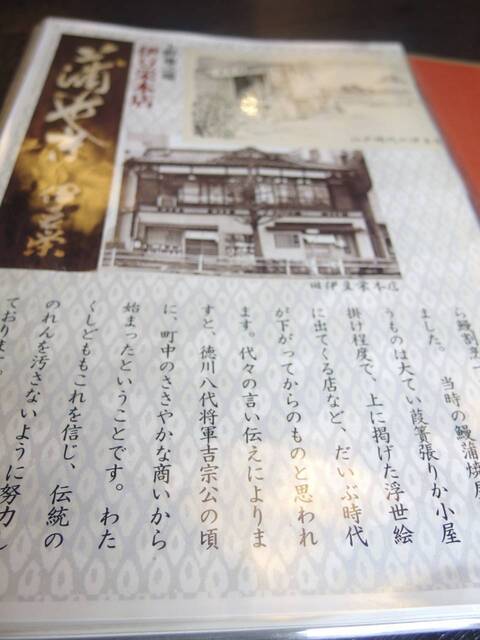 蒲やき 伊豆栄
伊豆栄本店
旧伊豆栄本店
ら鰻割烹
ました。 当時の鰻蒲焼屋
うものは大てい葭簀張りか小屋
掛け程度で、上に掲げた浮世絵
に出てくる店など、だいぶ時代
が下がってからのものと思われ
ます。代々の言い伝えによりま
すと、徳川八代将軍吉宗公の頃
に、町中のささやかな商いから
始まったということです。わた
くしどももこれを信じ、伝統の
のれんを汚さないように努力し
ております。